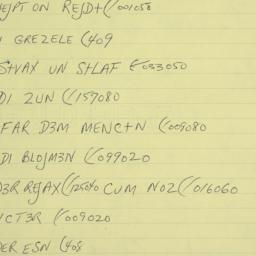 HEJPT ON REJD+(001050
I GREZELE (409
S+VAX UN S+LAF (033050
DI ZUN (159080
FAR D3M MENC+N (009080
DI BLOJM3N (099020
D3R REJAX(125040 CUM NOZ(016060
ICT3R (009020
DER ESN (408